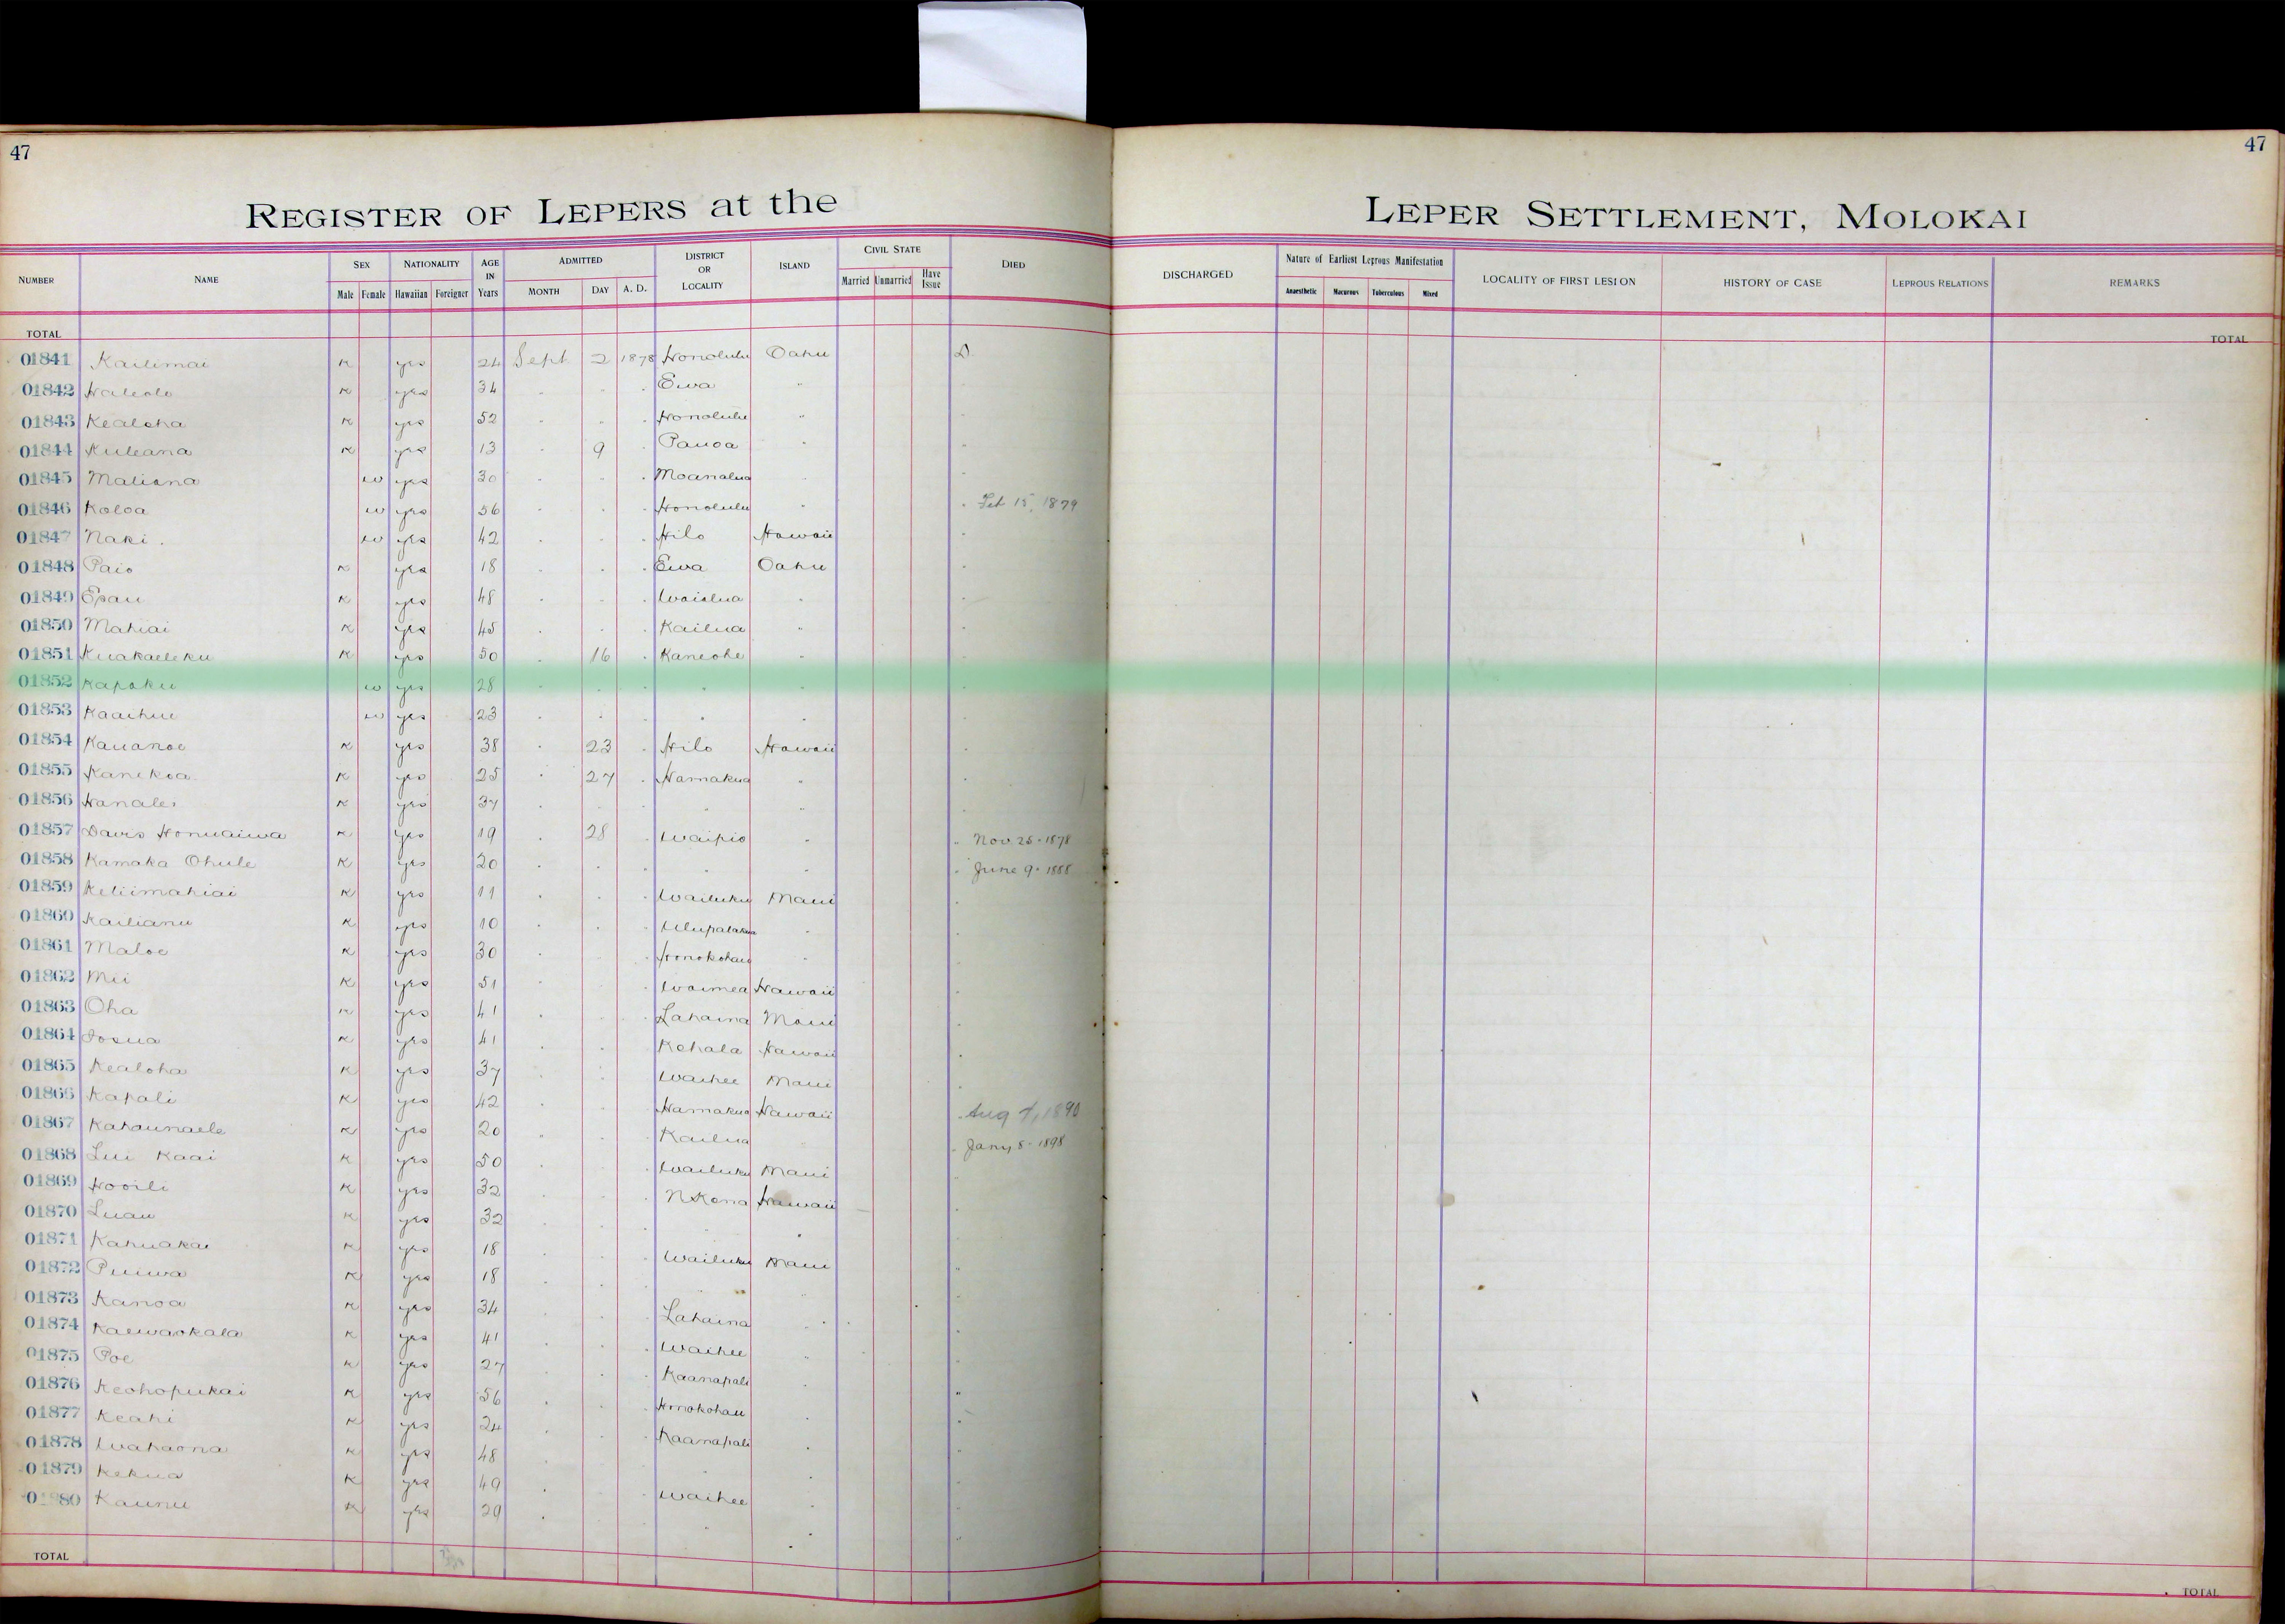 47
47
REGISTER OF LEPERS at the LEPER SETTLEMENT, MOLOKAI
NUMBER NAME SEX NATIONALITY AGE IN Years ADMITTED DISTRICT OR LOCALITY ISLAND CIVIL STATE DIED DISCHARGED Nature of Earliest Leprous Manifestation LOCALITY OF FIRST LESION HISTORY OF CASE LEPROUS RELATIONS REMARKS
Male Female Hawaiian Foreigner MONTH DAY A. D. Married Unmarried Have Issue Anaesthetic Macurous Tuberculous Mixed
TOTAL TOTAL
01841 Kailimai K yes 24 Sept 2 1878 Honolulu Oahu D
01842 Haleolo K yes 34 " " " Ewa "
01843 Kealoha K yes 52 " " " Honolulu "
01844 Kuleana K yes 13 " 9 " Pauoa " "
01845 Maliana w yes 30 " " " Moanalua " "
01846 Koloa w yes 56 " " " Honolulu " " Feb 15, 1879
01847 Naki w yes 42 " " " Hilo Hawaii "
01848 Paio K yes 18 " " " Ewa Oahu "
01849 Epau K yes 48 " " " Waialua " "
01850 Mahiai K yes 45 " " " Kailua " "
01851 Kuakaeleku K yes 50 " 16 " Kaneohe " "
01852 Kapoku w yes 28 " " " " " "
01853 Kaaihue w yes 23 " " " " "
01854 Kauanoe K yes 38 " 23 " Hilo Hawaii "
01855 Kanekoa K yes 25 " 27 " Hamakua " "
01856 Hanalei K yes 37 " " " " " "
01857 Davis Honuaiwa K yes 19 " 28 " Waipio " " Nov 25 - 1878
01858 Kamaka Ohule K yes 20 " " " " " " June 9 - 1888
01859 Keliimahiai K yes 11 " " " Wailuku Maui "
01860 Kailianu K yes 10 " " " Ulupalakua " "
01861 Maloe K yes 30 " " " Honokohau " "
01862 Mii K yes 51 " " " Waimea Hawaii "
01863 Oha K yes 41 " " " Lahaina Maui "
01864 Iosua K yes 41 " " " Kohala Hawaii "
01865 Kealoha K yes 37 " " " Waihee Maui "
01866 Kapali K yes 42 " " " Hamakua Hawaii " Aug 7, 1890
01867 Kahaunaele K yes 20 " " " Kailua " " Jany 8 - 1898
01868 Lui Kaai K yes 50 " " " Wailuku Maui "
01869 Hooili K yes 32 " " " N Kona Hawaii "
01870 Luau K yes 32 " " " " "
01871 Kahuakai K yes 18 " " " Wailuku Maui "
01872 Puiwa K yes 18 " " " " "
01873 Kanoa K yes 34 " " " Lahaina " "
01874 Kaewaokala K yes 41 " " " Waihee " "
01875 Poe K yes 27 " " " Kaanapali " "
01876 Keohopukai K yes 56 " " " Honokohau " "
01877 Keahi K yes 24 " " " Kaanapali " "
01878 Wahaona K yes 48 " " " " "
01879 Kekua K yes 49 " " " Waihee " "
0 80 Kaunu K yes 29 " " " " "
TOTAL TOTAL